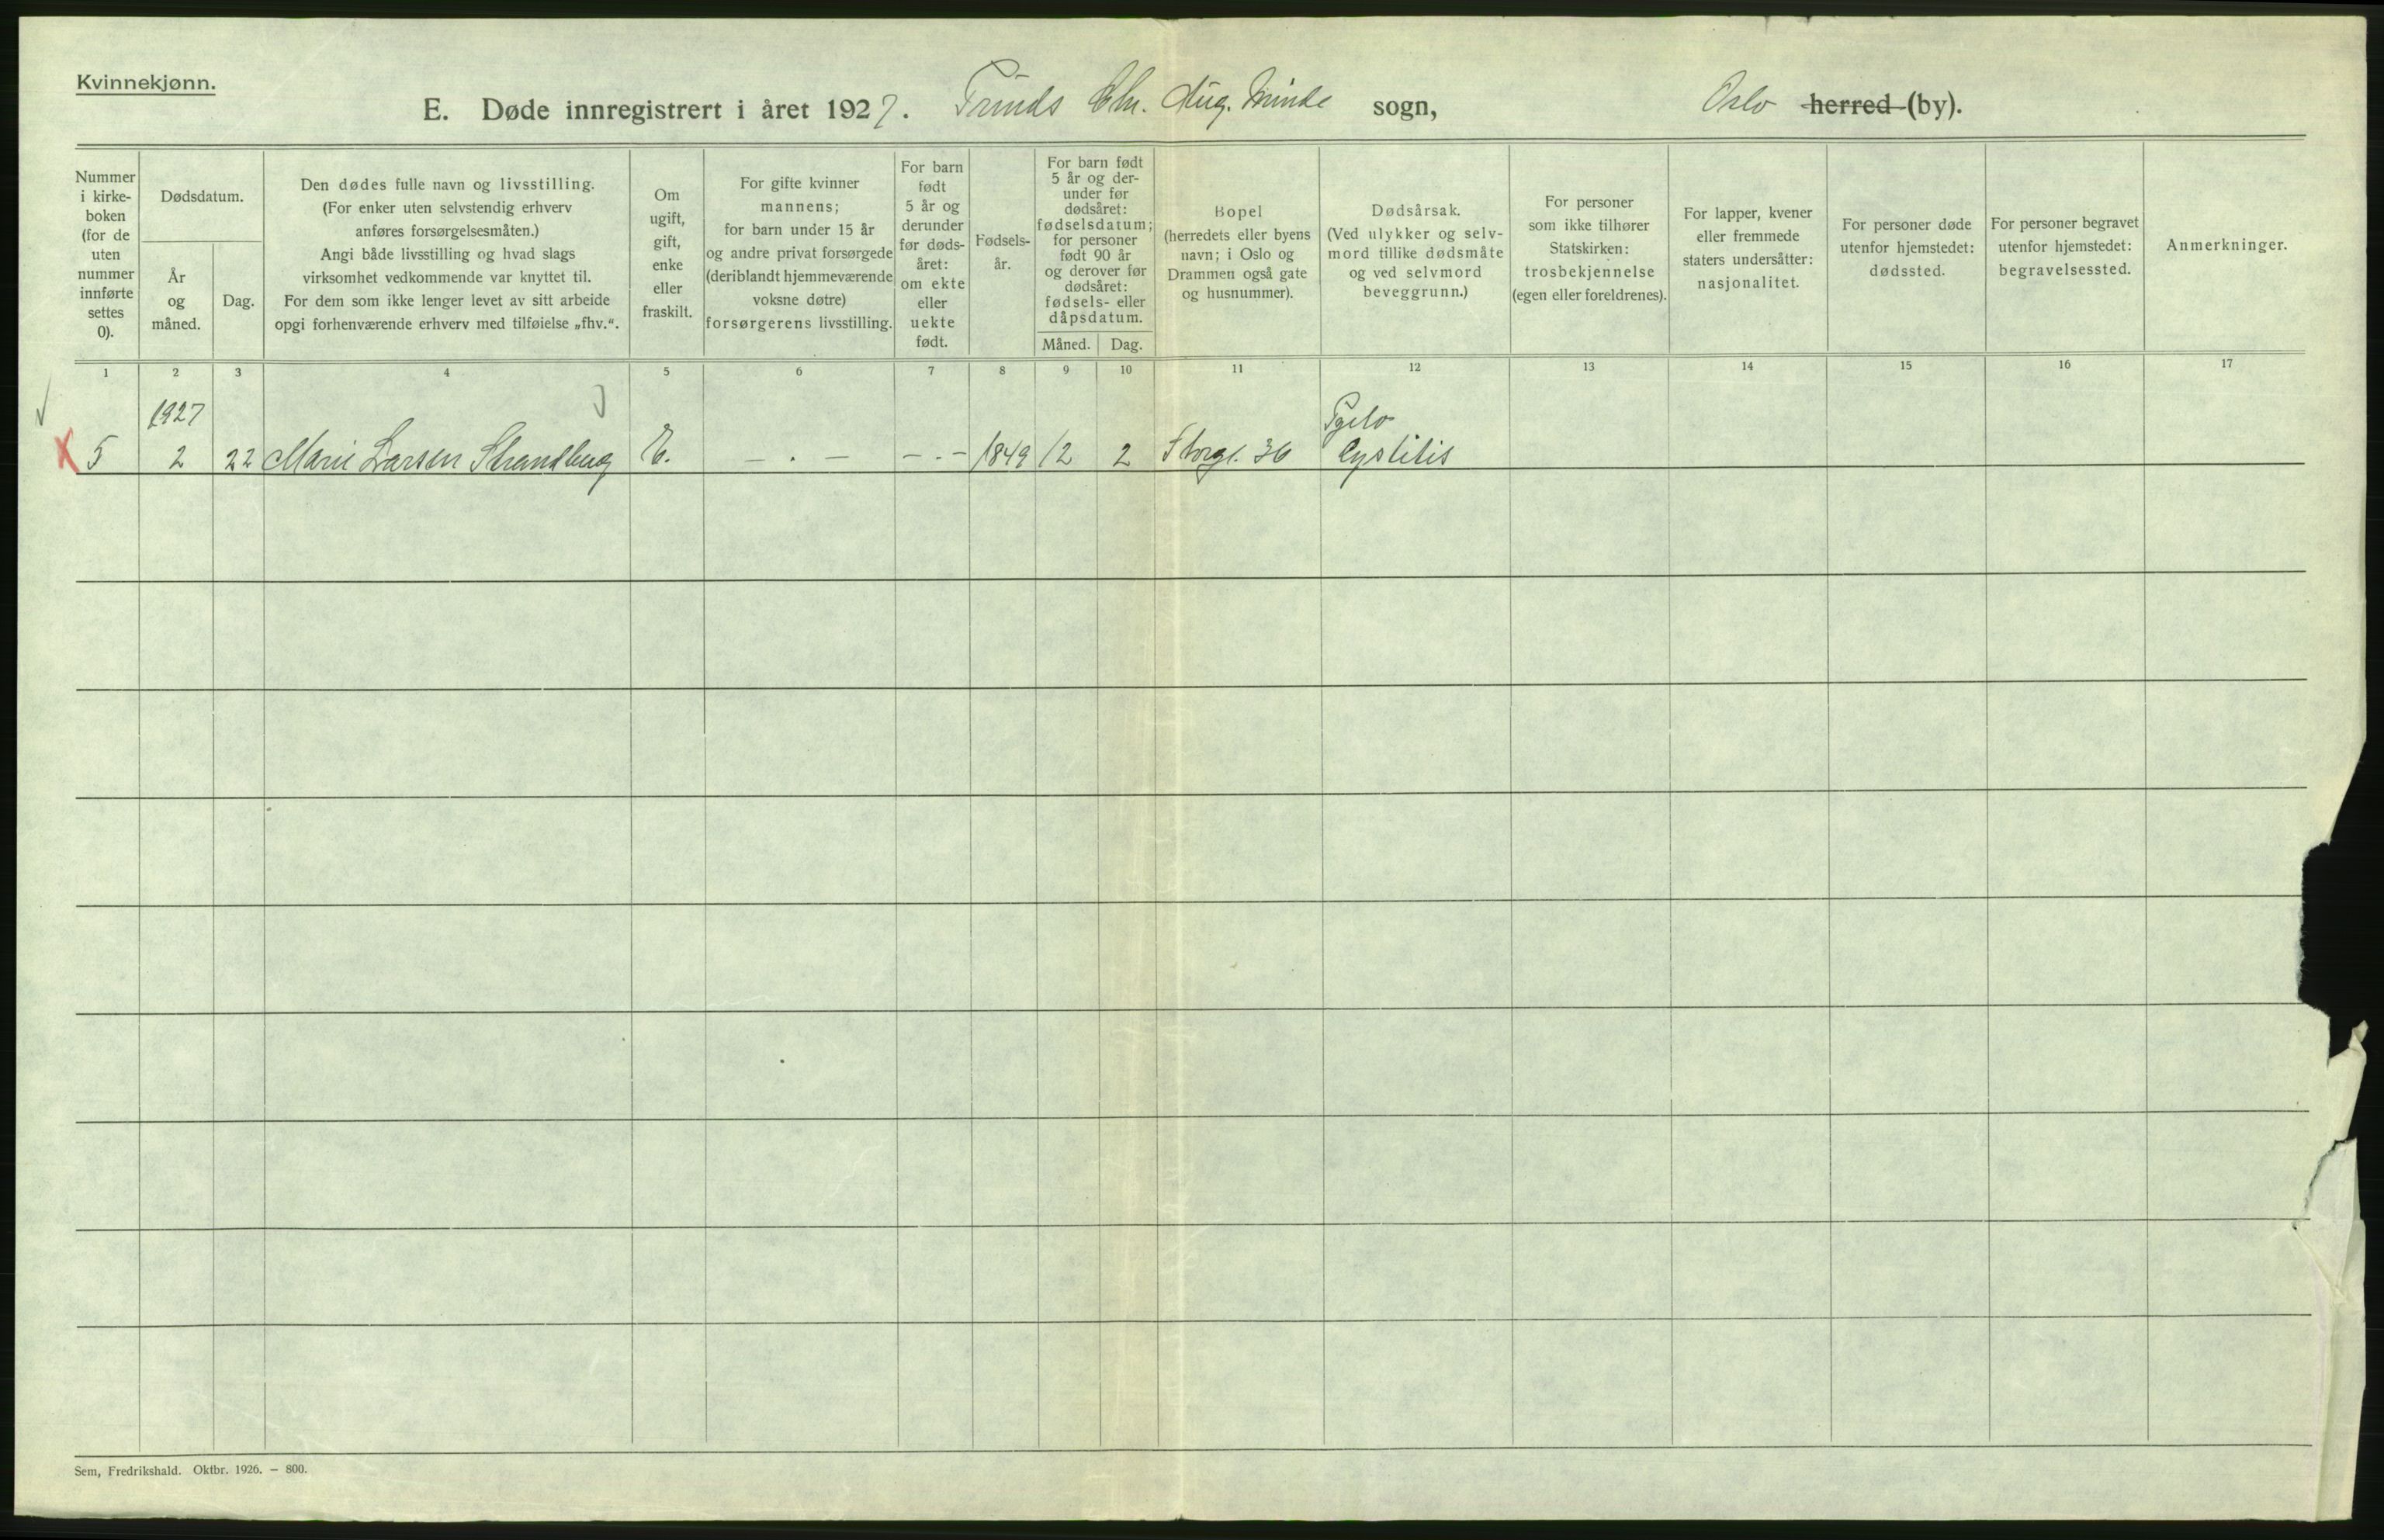 Kvinnekjønn.
E. Døde innregistrert i året 1927. Prinds Chr. Aug. Minde sogn, Oslo herred (by).
Nummer i kirke-boken (for de uten nummer innførte settes 0).
Dødsdatum.
År og måned.
Dag.
Den dødes fulle navn og livsstilling.
(For enker uten selvstendig erhverv
anføres forsørgelsesmåten.)
Angi både livsstilling og hvad slags
virksomhet vedkommende var knyttet til.
For dem som ikke lenger levet av sitt arbeide
opgi forhenværende erhverv med tilføielse „fhv.“.
Om
ugift,
gift,
enke
eller
fraskilt.
For gifte kvinner
mannens;
for barn under 15 år
og andre privat forsørgede
(deriblandt hjemmeværende
voksne døtre)
forsørgerens livsstilling.
For barn
født
5 år og
derunder
før døds-
året:
om ekte
eller
uekte
født.
Fødsels-
år.
For barn født
5 år og der-
under før
dødsåret:
fødselsdatum;
for personer
født 90 år
og derover før
dødsåret:
fødsels- eller
dåpsdatum.
Måned.
Dag.
Bopel
(herredets eller byens
navn; i Oslo og
Drammen også gate
og husnummer).
Dødsårsak.
(Ved ulykker og selv-
mord tillike dødsmåte
og ved selvmord
beveggrunn.)
For personer
som ikke tilhører
Statskirken:
trosbekjennelse
(egen eller foreldrenes).
For lapper, kvener
eller fremmede
staters undersåtter:
nasjonalitet.
For personer døde
utenfor hjemstedet:
dødssted.
For personer begravet
utenfor hjemstedet:
begravelsessted.
Anmerkninger.
1 2 3 4 5 6 7 8 9 10 11 12 13 14 15 16 17
1927 Pyelo
X 5 2 22 Marie Larsen Strandberg E. — . — — . — 1849 12 2 Storgt. 36 Cystitis
Sem, Fredrikshald. Oktbr. 1926. — 800.